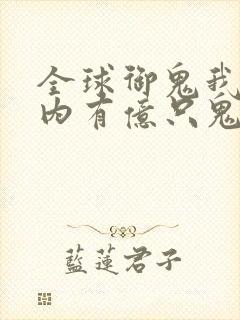 全球御鬼我
内有億只鬼
藍蓮君子